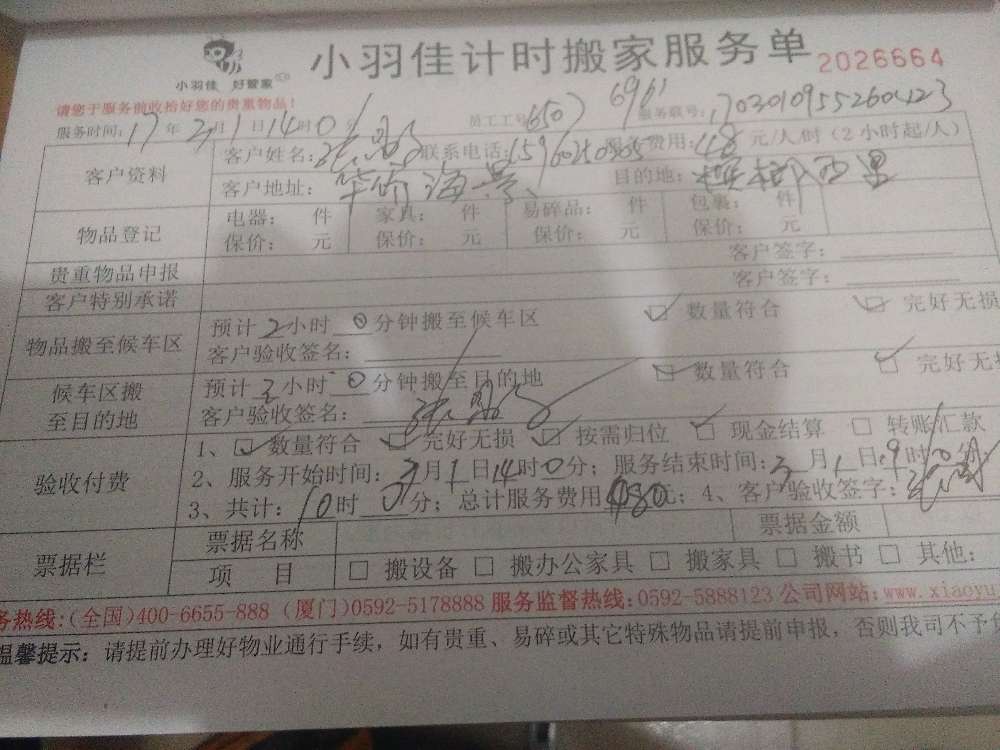 小羽佳 好管家
小羽佳计时搬家服务单 2026664
请您于服务前收拾好您的贵重物品!
服务时间:17年3月1日14时0 员工工号:6507 6961 服务联号:170301095526004123
客户资料 客户姓名: 联系电话: 服务费用:48元/人/时(2小时起/人)
客户地址:华侨海景 目的地:西里
物品登记 电器: 件 家具: 件 易碎品: 件 包裹: 件
保价: 元 保价: 元 保价: 元 保价: 元
贵重物品申报 客户签字:
客户特别承诺 客户签字:
物品搬至候车区 预计2小时0分钟搬至候车区 数量符合 完好无损
客户验收签名:
候车区搬至目的地 预计2小时0分钟搬至目的地 数量符合 完好无损
客户验收签名:
验收付费 1、数量符合 完好无损 按需归位 现金结算 转账汇款
2、服务开始时间:3月1日14时0分;服务结束时间:3月1日19时
3、共计:10时0分;总计服务费用480元;4、客户验收签字:
票据栏 票据名称 票据金额
项 目 搬设备 搬办公家具 搬家具 搬书 其他:
务热线:(全国)400-6655-888 (厦门)0592-5178888 服务监督热线:0592-5888123 公司网站:www.xiaoyu
温馨提示:请提前办理好物业通行手续,如有贵重、易碎或其它特殊物品请提前申报,否则我司不予